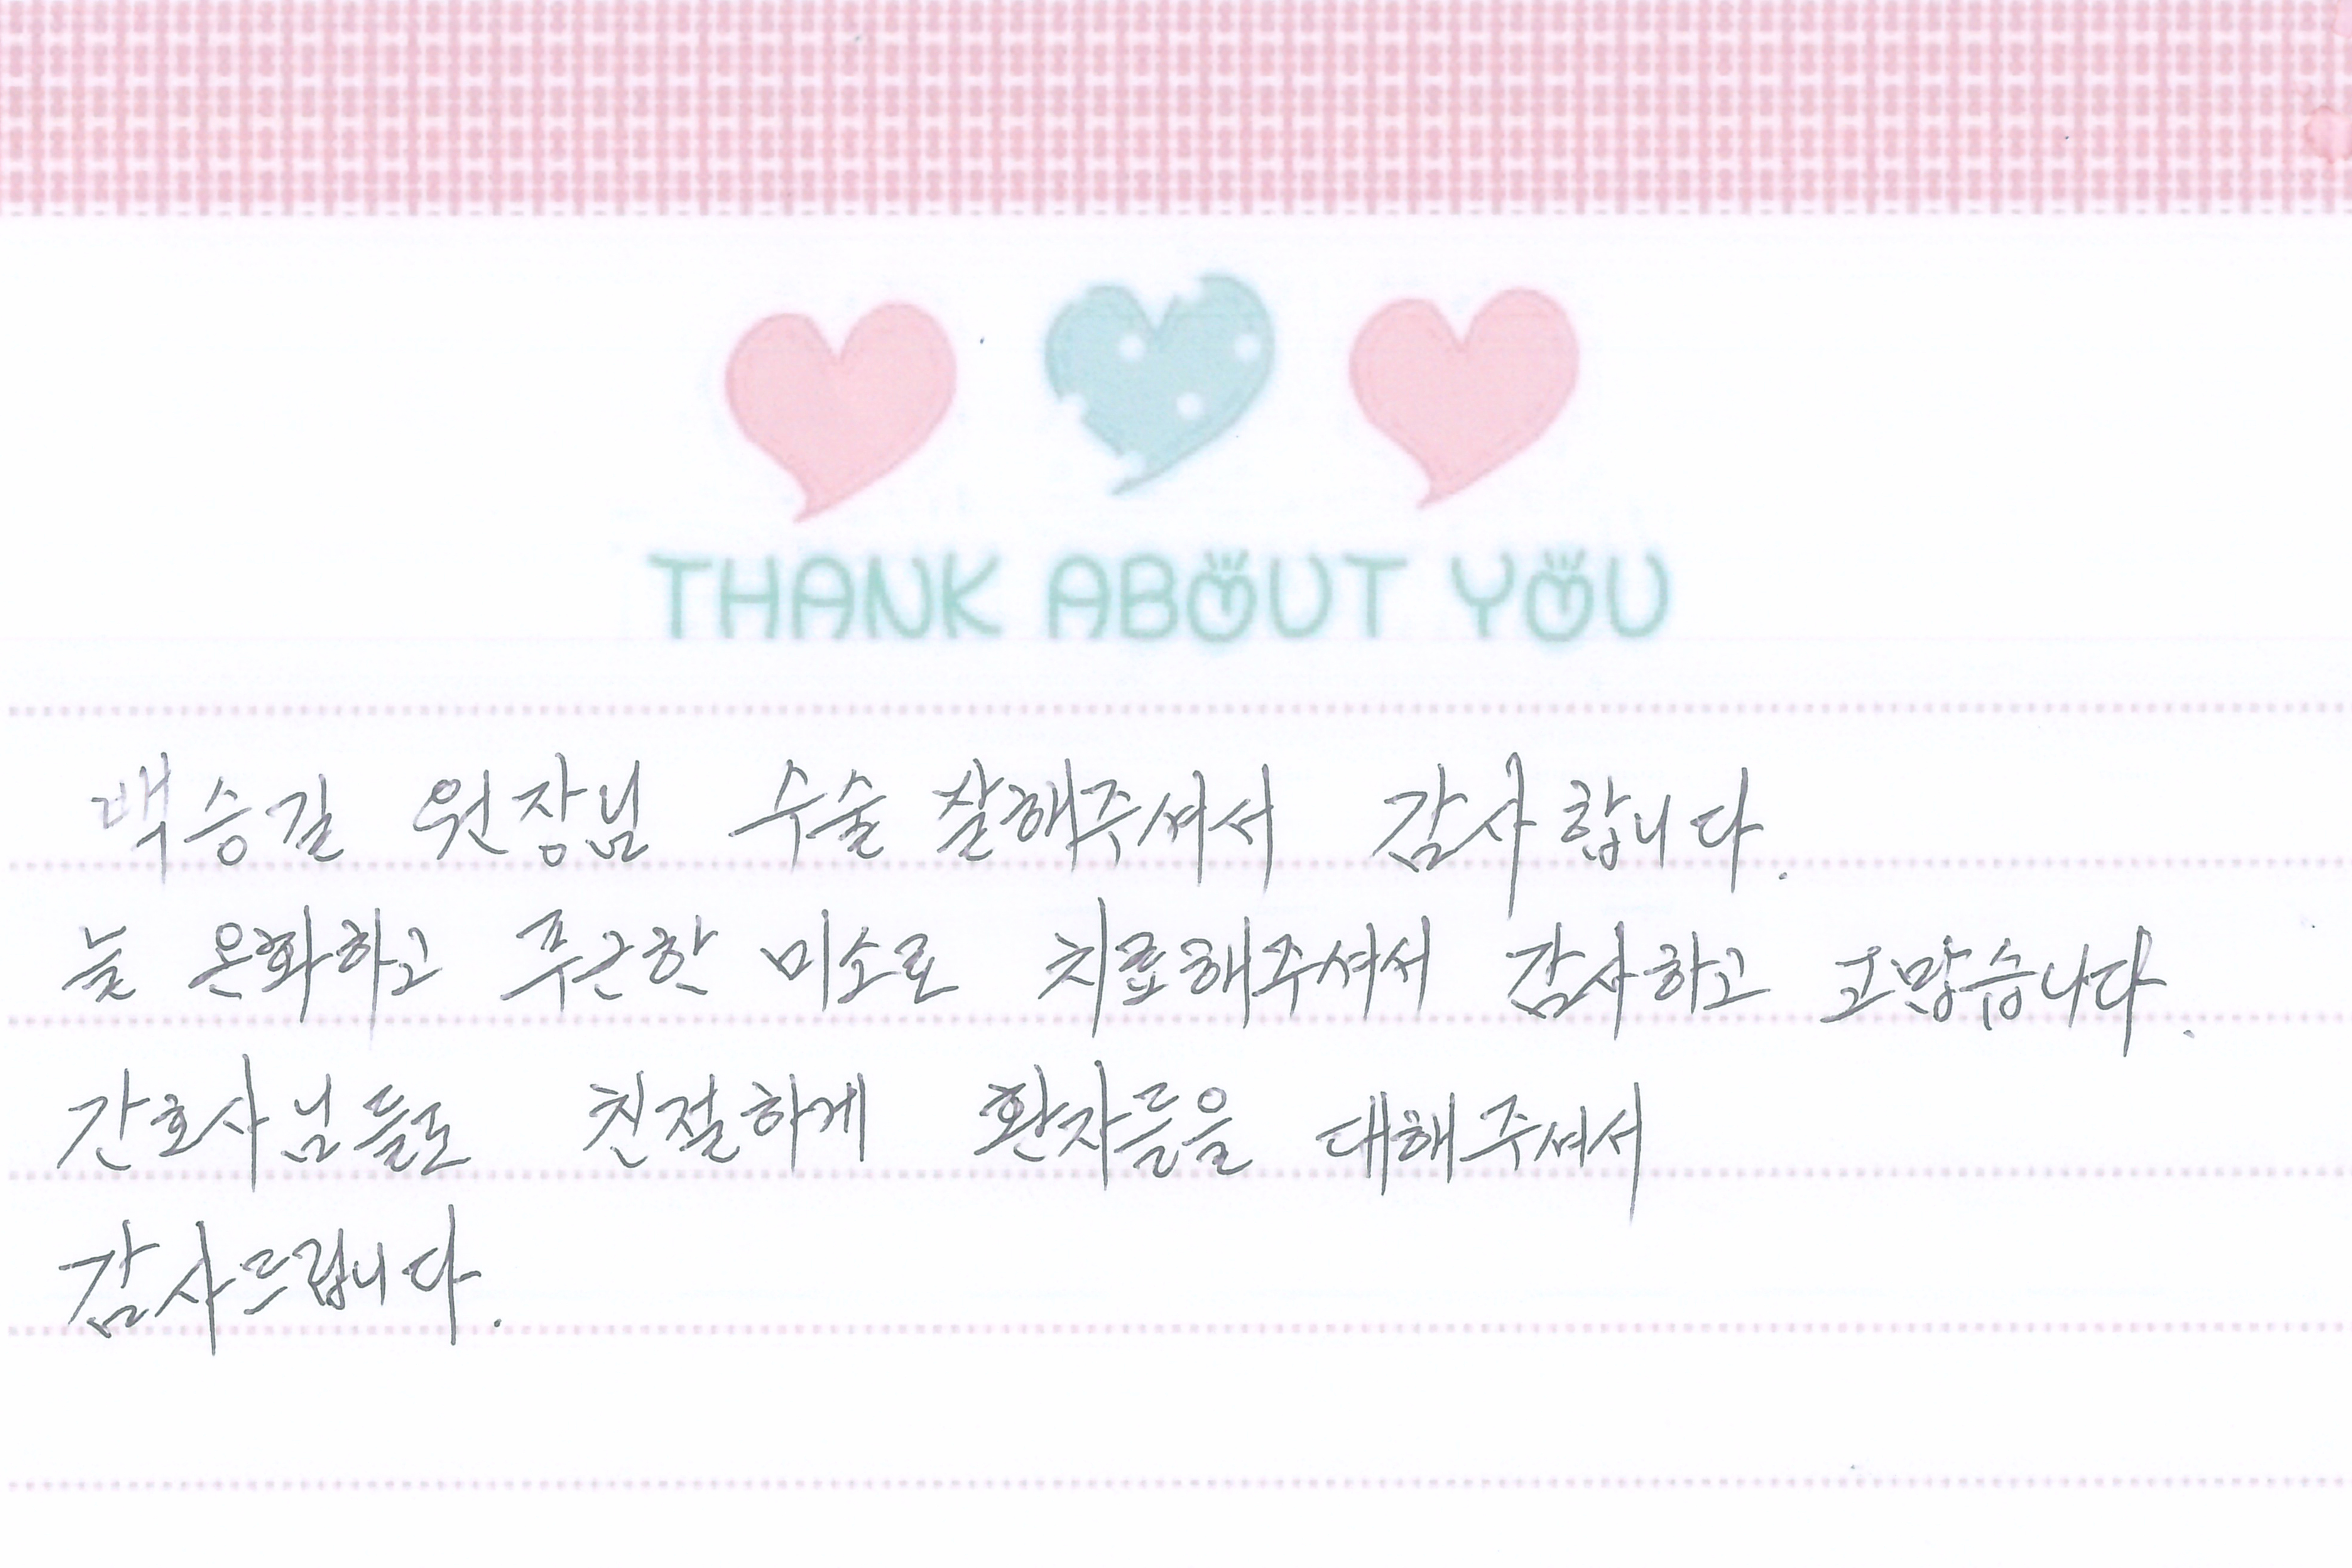 THANK ABOUT YOU
백승길 원장님 수술 잘해주셔서 감사합니다.
늘 온화하고 푸근한 미소로 치료해주셔서 감사하고 고맙습니다.
간호사님들도 친절하게 환자들을 대해주셔서
감사드립니다.